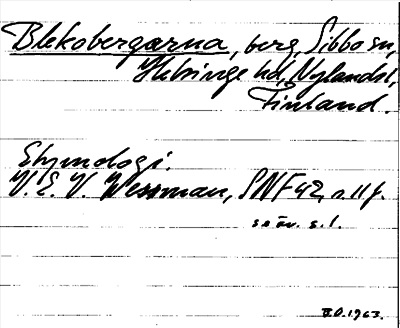 Blekobergærna, berg, Sibbo sn,
Helsinge hd, Nylands l,
Finland.
Etymologi.
V. E. V. Wessman, SNF 42, s. 11 f.
se äv. s. 1.
1963.